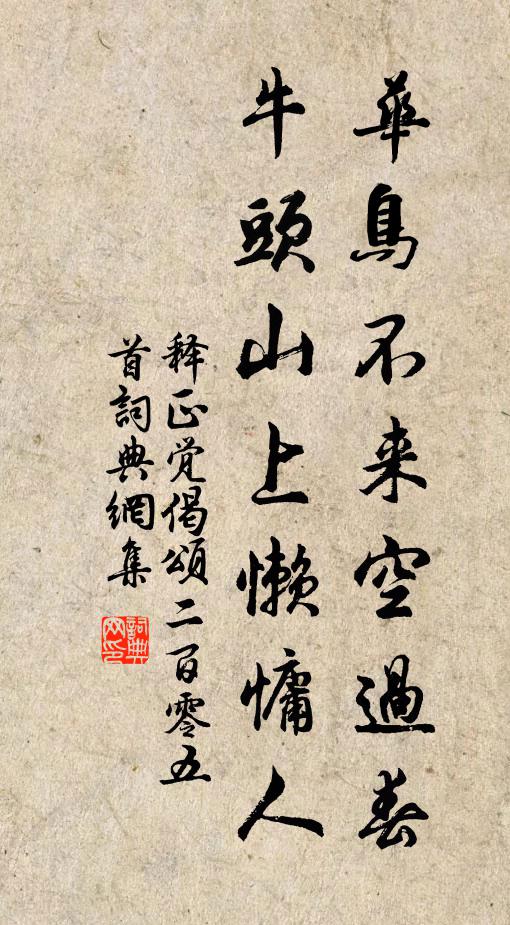 華鳥不来空過春
牛頭山上懒慵人
释正觉偈頌二百零五
首詞典網集
詞典
网印